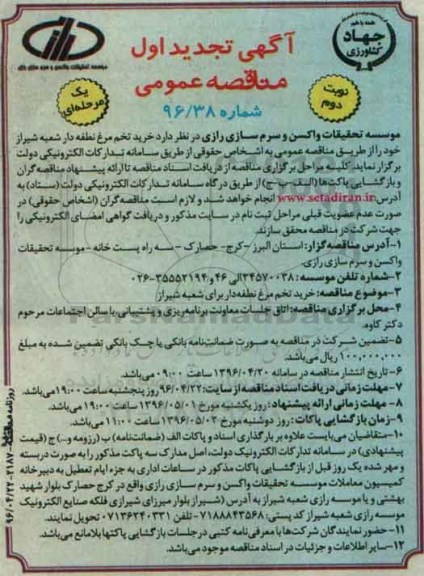 همه با هم
جهاد
کشاورزی
آگهی تجدید اول
مناقصه عمومی
شماره ۹۶/۳۸
نوبت
دوم
یک
مرحله‌ای
موسسه تحقیقات واکسن و سرم سازی رازی
موسسه تحقیقات واکسن و سرم سازی رازی در نظر دارد خرید تخم مرغ نطفه دار شعبه شیراز
خود را از طریق مناقصه عمومی به اشخاص حقوقی از طریق سامانه تدارکات الکترونیکی دولت
برگزار نماید. کلیه مراحل برگزاری مناقصه از دریافت اسناد مناقصه تا ارائه پیشنهاد مناقصه گران
و بازگشایی پاکت‌ها (الف-ب-ج) از طریق درگاه سامانه تدارکات الکترونیکی دولت (ستاد) به
آدرس www.setadiran.ir انجام خواهد شد و لازم است مناقصه گران (اشخاص حقوقی) در
صورت عدم عضویت قبلی مراحل ثبت نام در سایت مذکور و دریافت گواهی امضای الکترونیکی را
جهت شرکت در مناقصه محقق سازند.
۱-آدرس مناقصه گزار: استان البرز-کرج- حصارک -سه راه پست خانه-موسسه تحقیقات
واکسن و سرم سازی رازی.
۲-شماره تلفن موسسه: ۳۴۵۷۰۰۳۸ الی ۴۶ و ۳۵۵۵۲۱۹۴-۰۲۶
۳-موضوع مناقصه: خرید تخم مرغ نطفه‌دار برای شعبه شیراز
۴-محل برگزاری مناقصه: اتاق جلسات معاونت برنامه ریزی و پشتیبانی یا سالن اجتماعات مرحوم
دکتر کاوه.
۵-تضمین شرکت در مناقصه به صورت ضمانتنامه بانکی یا چک بانکی تضمین شده به مبلغ
۱۰۰,۰۰۰,۰۰۰ ریال می‌باشد.
۶- تاریخ انتشار مناقصه در سامانه ۱۳۹۶/۰۴/۲۰ ساعت ۰۹:۰۰ می‌باشد.
۷-مهلت زمانی دریافت اسناد مناقصه از سایت: ۹۶/۰۴/۲۲ روز پنجشنبه ساعت ۱۹:۰۰ می‌باشد.
۸-مهلت زمانی ارائه پیشنهاد: روز یکشنبه مورخ ۱۳۹۶/۰۵/۰۱ ساعت ۱۹:۰۰ می‌باشد.
۹-زمان بازگشایی پاکات: روز دوشنبه مورخ ۱۳۹۶/۰۵/۰۲ ساعت ۱۱:۰۰ می‌باشد.
۱۰-متقاضیان می‌بایست علاوه بر بارگذاری اسناد و پاکات الف (ضمانتنامه) ب) رزومه و... ج) قیمت
پیشنهادی) در سامانه تدارکات الکترونیک دولت، اصل مدارک سه پاکت مذکور را به صورت دربسته
و مهر شده یک روز قبل از بازگشایی پاکات مذکور در ساعات اداری به جزء ایام تعطیل به دبیرخانه
کمیسیون معاملات موسسه تحقیقات واکسن و سرم سازی رازی واقع در کرج حصارک بلوار شهید
بهشتی و یا موسسه رازی شعبه شیراز به آدرس (شیراز بلوار میرزای شیرازی فلکه صنایع الکترونیک
موسسه رازی شعبه شیراز کد پستی: ۷۱۸۸۸۴۳۵۶۸-تلفن ۰۷۱۳۶۲۴۰۳۳۱ تحویل نمایند.
۱۱-حضور نمایندگان شرکت‌ها با معرفی نامه کتبی در جلسات بازگشایی پاکتها بلامانع می‌باشد.
۱۲-سایر اطلاعات و جزئیات در اسناد مناقصه موجود می‌باشد.